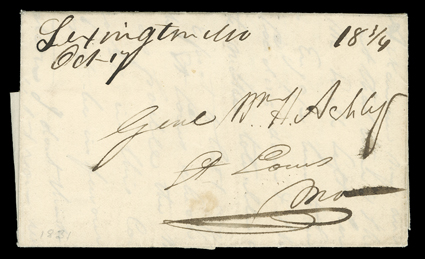 Lexington Mo 18 3/4
Oct 17
Genl Wm H. Ashley
St Louis
Mo
1831